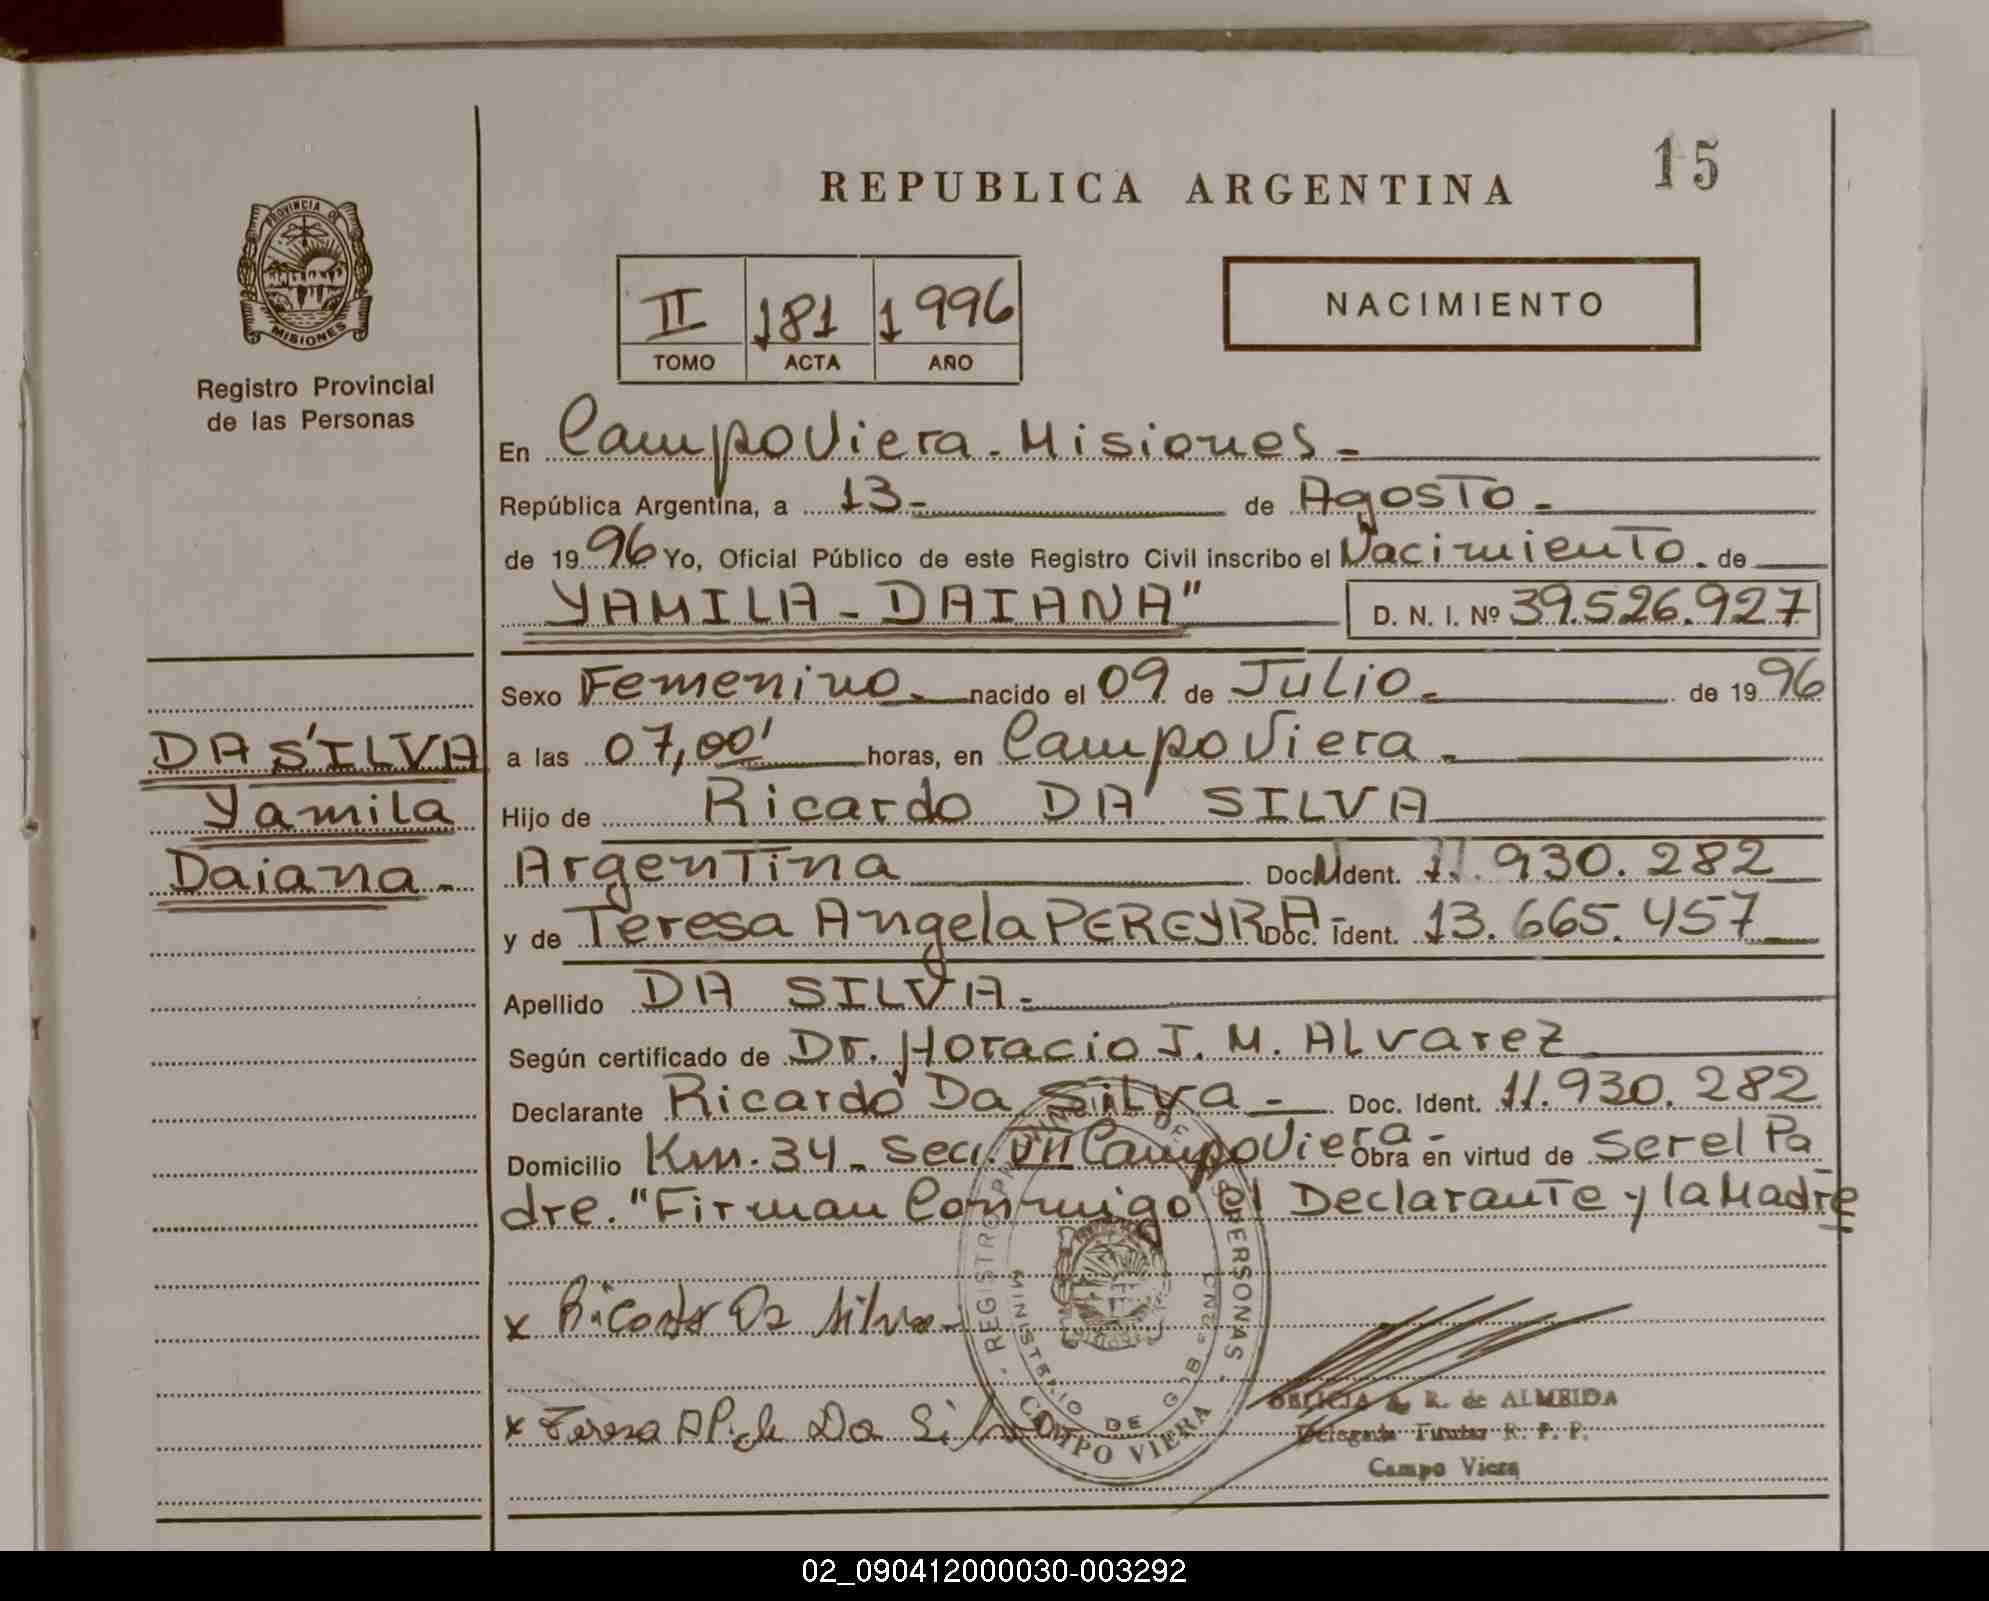 15
REPUBLICA ARGENTINA
PROVINCIA DE
MISIONES
Registro Provincial
de las Personas
II 181 1996
TOMO ACTA AÑO
NACIMIENTO
En Campo Viera - Misiones -
República Argentina, a 13- de Agosto -
de 1996 Yo, Oficial Público de este Registro Civil inscribo el Nacimiento - de
YAMILA - DAIANA" D. N. I. Nº 39.526.927
Sexo Femenino - nacido el 09 de Julio - de 1996
DA SILVA
Yamila
Daiana -
a las 07,00' horas, en Campo Viera -
Hijo de Ricardo DA SILVA
Argentina Doc. Ident. 11.930.282
y de Teresa Angela PEREYRA - Doc. Ident. 13.665.457
Apellido DA SILVA -
Según certificado de Dr. Horacio J. M. Alvarez
Declarante Ricardo Da Silva - Doc. Ident. 11.930.282
Domicilio Km. 34 - Secc. VII Campo Viera - Obra en virtud de Ser el Pa
dre. "Firman Conmigo el Declarante y la Madre
x Ricardo Da Silva -
x Teresa A P. de Da Silva
REGISTRO PROVINCIAL DE LAS PERSONAS
MINISTERIO DE GOB.
CAMPO VIERA
R. de ALMEIDA
Delegada Titular R. P. P.
Campo Viera
02_090412000030-003292